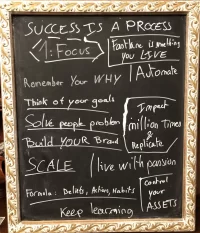 SUCCESS IS A PROCESS
1: FOCUS
Fast lane is
YOU LIVE
Automate
Remember Your WHY
Think of your goals
Impact
million times
&
Replicate
Solve people problem
Build YOUR Brand
SCALE
live with passion
Formula: Beliefs, Action, Habits
Control
your
ASSETS
Keep learning